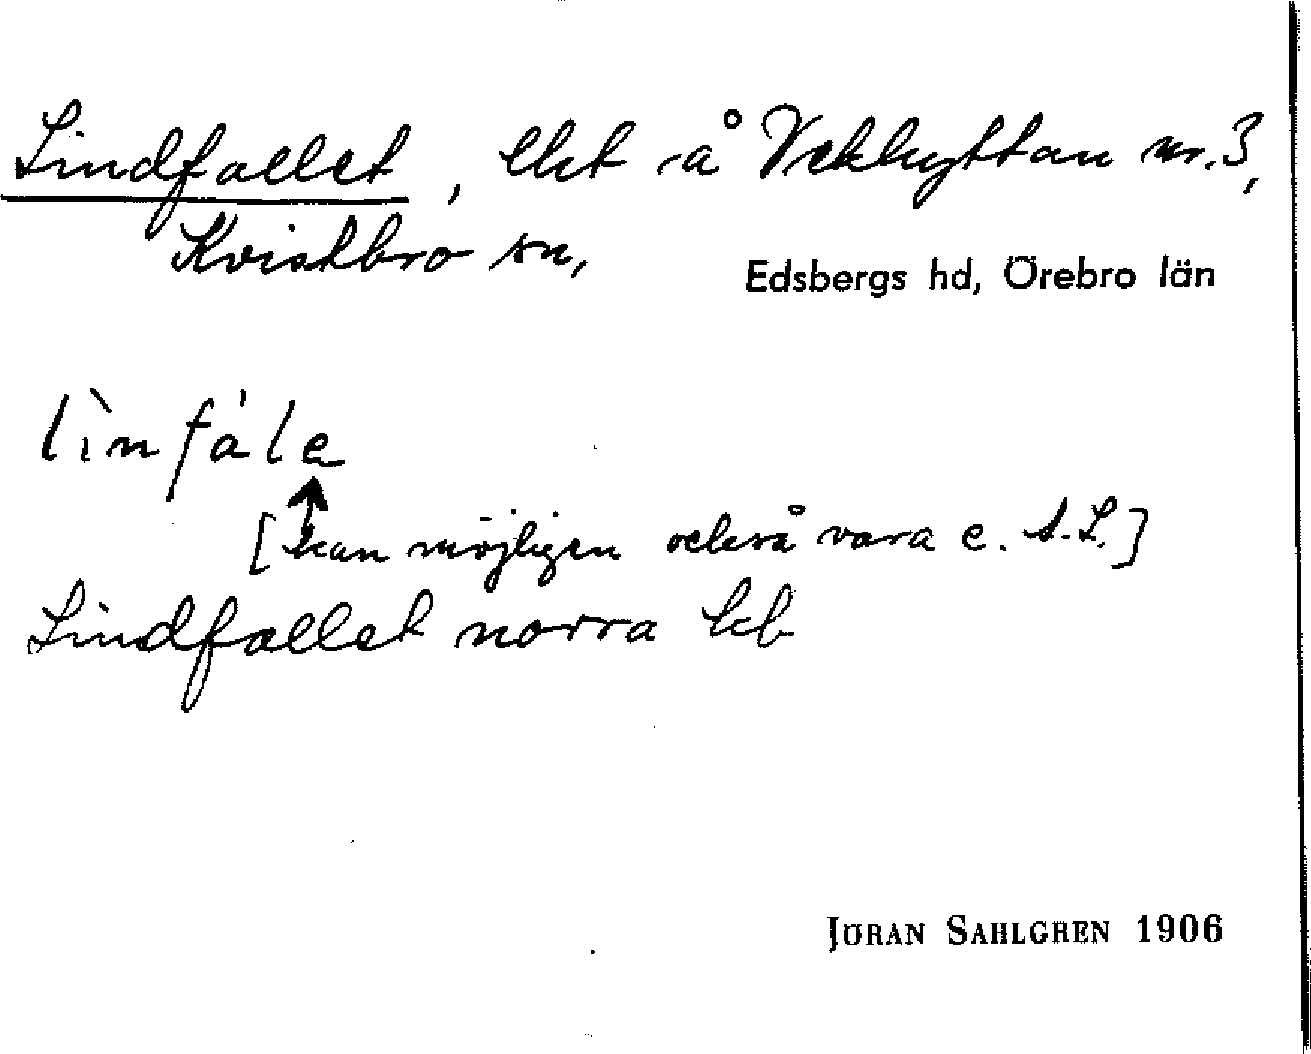 Lindfallet, lht å Vekhyttan nr. 3,
Kvistbro sn,
Edsbergs hd, Örebro län
lìnfála
[kan möjligen också vara e. A.L.]
Lindfallet norra kb
JÖRAN SAHLGREN 1906